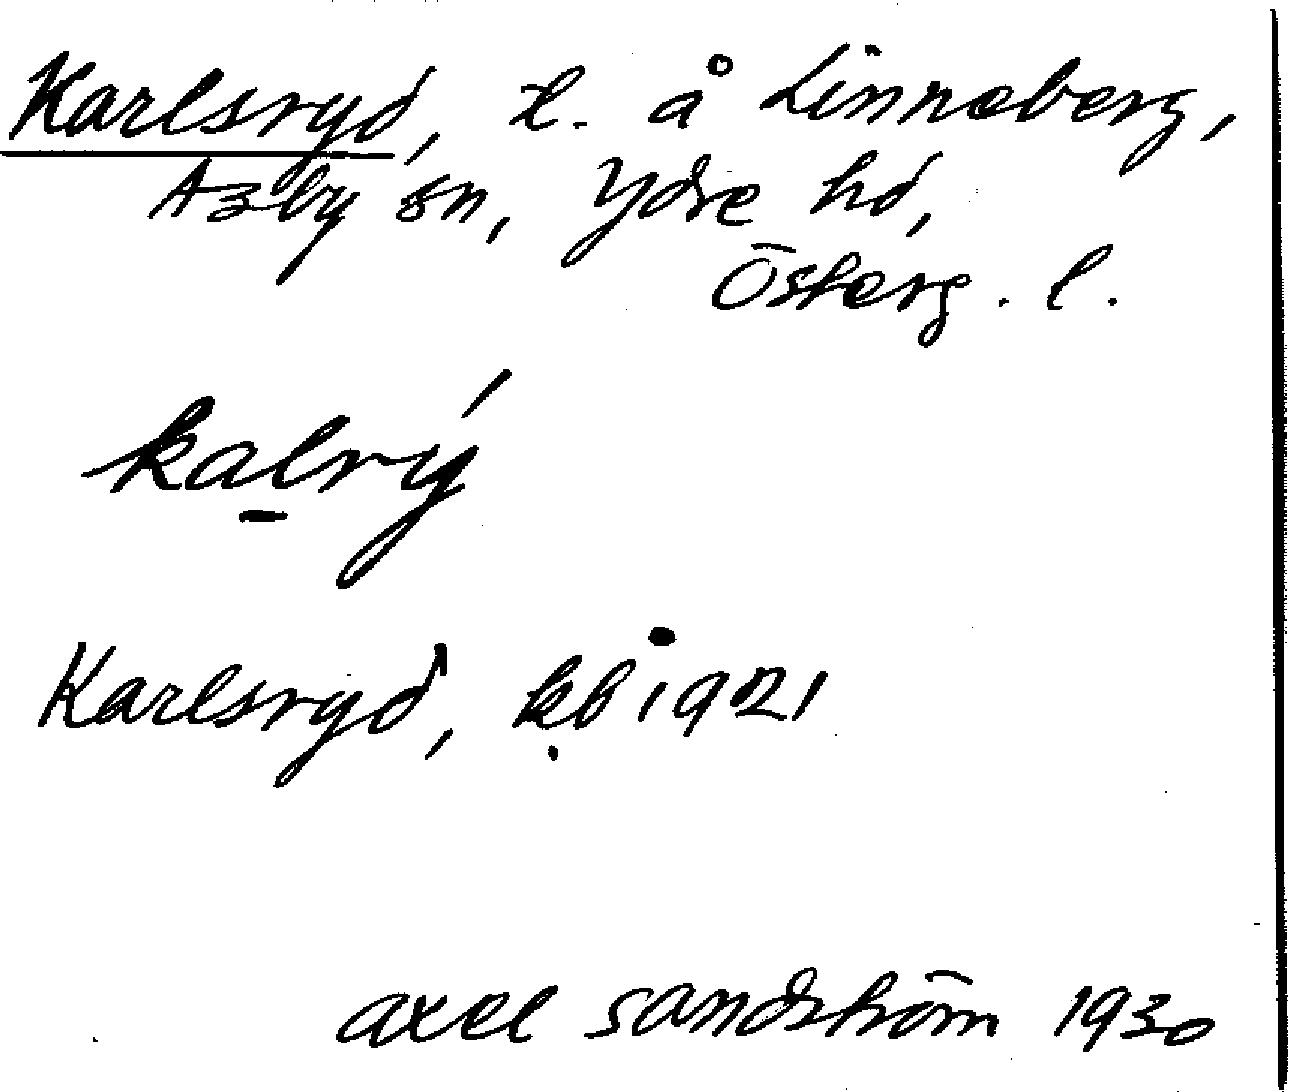 Karlsryd, t. å Linneberg,
Asby sn, Ydre hd,
Österg. l.
kalrý
Karlsryd, kb 1921
axel sandström 1930